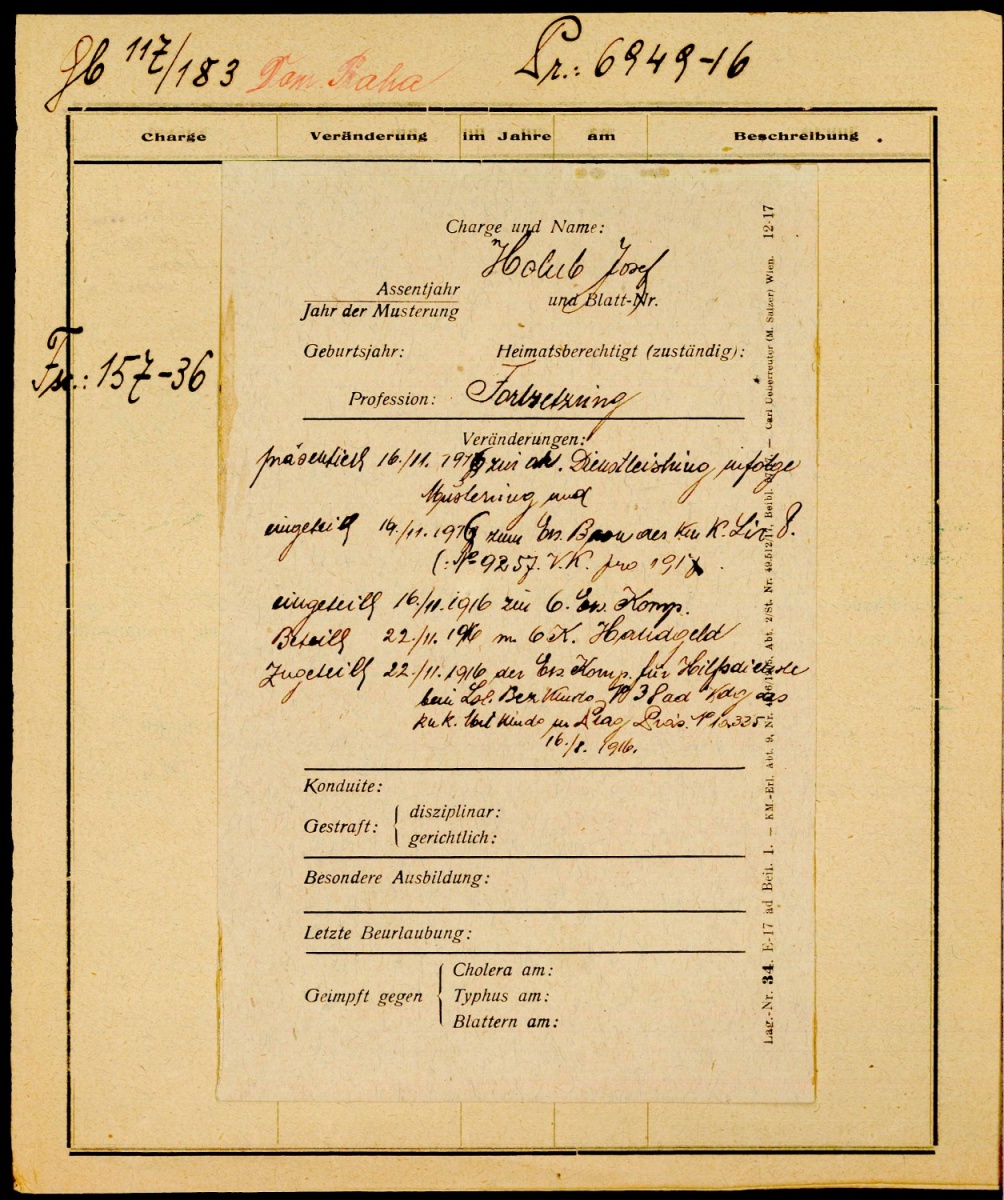 Gb 117/183 Dom. Praha Pr.: 6949-16
Charge Veränderung im Jahre am Beschreibung
Charge und Name:
Holub Josef
Assentjahr
Jahr der Musterung
und Blatt-Nr.
Fsc.: 157-36
Geburtsjahr: Heimatsberechtigt (zuständig):
Profession: Fortsetzung
Veränderungen:
präsentiert 16./11. 1916 zur akt. Dienstleistung infolge
Musterung und
eingeteilt 16/11. 1916 zum Ers. Baon des K.u.K. L.i.r. 8.
(: No 9257. V.K. pro 1917
eingeteilt 16./11. 1916 zur 6. Ers. Komp.
Beteilt 22./11. 1916 m. 6 K. Handgeld
Zugeteilt 22./11. 1916 der Ers. Komp. für Hilfsdienste
beim Ldst. Bez. Kmdo No 38 ad Kdg des
K.u.K. Mil. Kmdo in Prag Präs. No 10.325
16./8. 1916.
Konduite:
Gestraft: disziplinar:
gerichtlich:
Besondere Ausbildung:
Letzte Beurlaubung:
Geimpft gegen Cholera am:
Typhus am:
Blattern am:
Lag.-Nr. 34. E-17 ad Beil. 1. — KM.-Erl. Abt. 9, Nr. Abt. 2/St. Nr. 49.512/17, Beibl. — Carl Ueberreuter (M. Salzer) Wien. 12·17